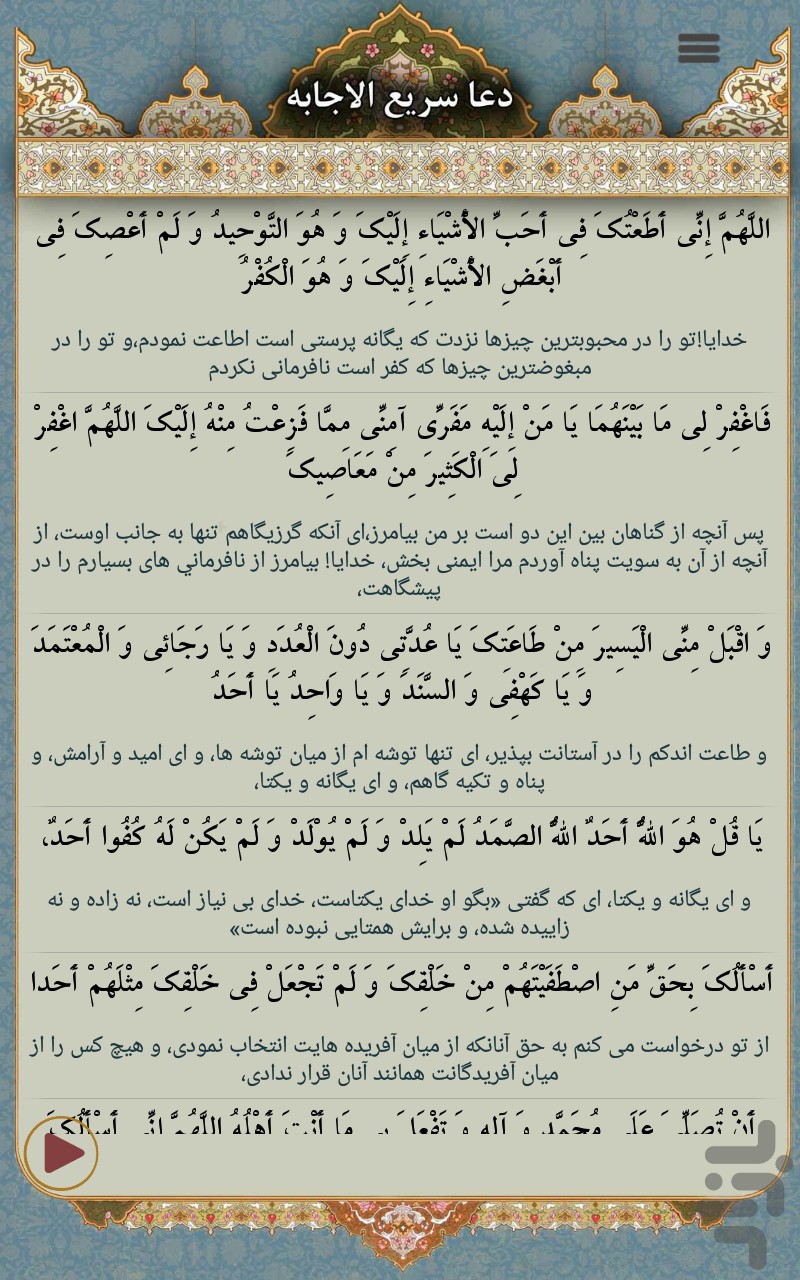 دعا سریع الاجابه
اللَّهُمَّ إِنِّی أَطَعْتُکَ فِی أَحَبِّ الأَشْیَاءِ إِلَیْکَ وَ هُوَ التَّوْحِیدُ وَ لَمْ أَعْصِکَ فِی
أَبْغَضِ الأَشْیَاءِ إِلَیْکَ وَ هُوَ الْکُفْرُ
خدایا!تو را در محبوبترین چیزها نزدت که یگانه پرستی است اطاعت نمودم،و تو را در
مبغوضترین چیزها که کفر است نافرمانی نکردم
فَاغْفِرْ لِی مَا بَیْنَهُمَا یَا مَنْ إِلَیْهِ مَفَرِّی آمِنِّی مِمَّا فَزِعْتُ مِنْهُ إِلَیْکَ اللَّهُمَّ اغْفِرْ
لِیَ الْکَثِیرَ مِنْ مَعَاصِیکَ
پس آنچه از گناهان بین این دو است بر من بیامرز،ای آنکه گرزیگاهم تنها به جانب اوست، از
آنچه از آن به سویت پناه آوردم مرا ایمنی بخش، خدایا! بیامرز از نافرماني های بسیارم را در
پیشگاهت،
وَ اقْبَلْ مِنِّی الْیَسِیرَ مِنْ طَاعَتِکَ یَا عُدَّتِی دُونَ الْعُدَدِ وَ یَا رَجَائِی وَ الْمُعْتَمَدَ
وَ یَا کَهْفِی وَ السَّنَدَ وَ یَا وَاحِدُ یَا أَحَدُ
و طاعت اندکم را در آستانت بپذیر، ای تنها توشه ام از میان توشه ها، و ای امید و آرامش، و
پناه و تکیه گاهم، و ای یگانه و یکتا،
یَا قُلْ هُوَ اللهُ أَحَدٌ اللهُ الصَّمَدُ لَمْ یَلِدْ وَ لَمْ یُوْلَدْ وَ لَمْ یَکُنْ لَهُ کُفُوا أَحَدٌ،
و ای یگانه و یکتا، ای که گفتی «بگو او خدای یکتاست، خدای بی نیاز است، نه زاده و نه
زاییده شده، و برایش همتایی نبوده است»
أَسْأَلُکَ بِحَقِّ مَنِ اصْطَفَیْتَهُمْ مِنْ خَلْقِکَ وَ لَمْ تَجْعَلْ فِی خَلْقِکَ مِثْلَهُمْ أَحَدا
از تو درخواست می کنم به حق آنانکه از میان آفریده هایت انتخاب نمودی، و هیچ کس را از
میان آفریدگانت همانند آنان قرار ندادی،
أَنْ تُصَلِّیَ عَلَی مُحَمَّدٍ وَ آلِهِ وَ تَفْعَلَ بِی مَا أَنْتَ أَهْلُهُ اللَّهُمَّ إِنِّی أَسْأَلُکَ
بازار